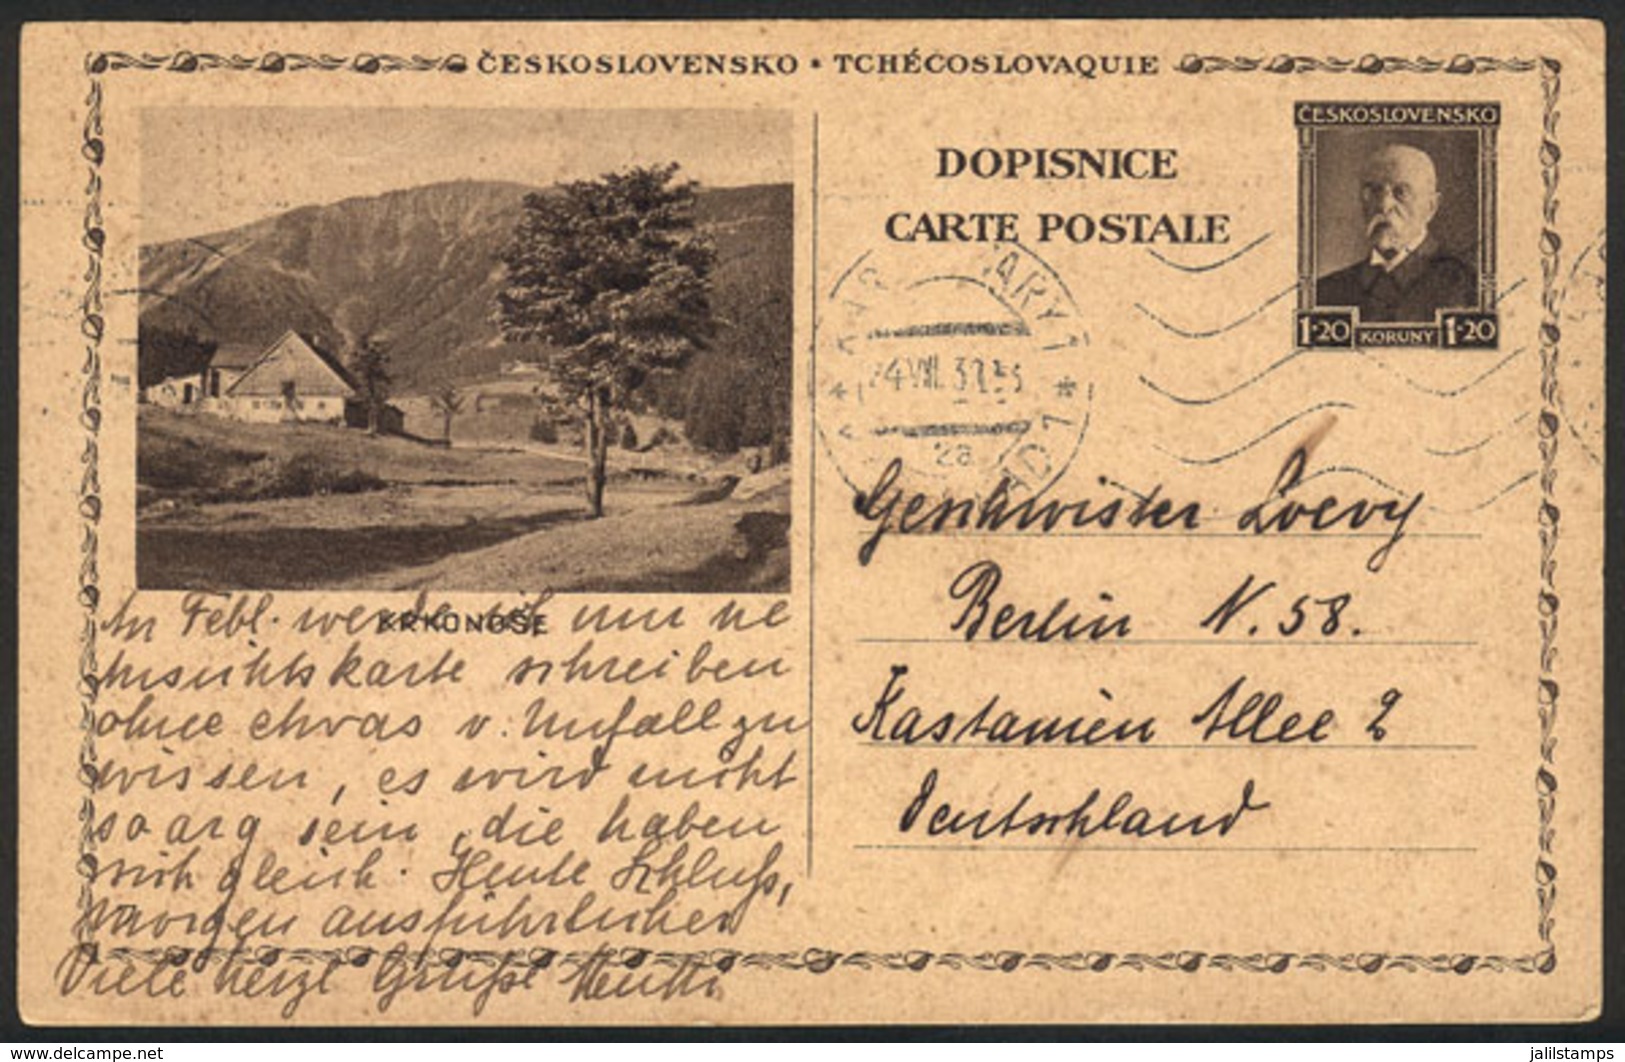 ČESKOSLOVENSKO • TCHÉCOSLOVAQUIE
DOPISNICE
CARTE POSTALE
ČESKOSLOVENSKO
1·20 KORUNY 1·20
ARY 1
2a
KRKONOŠE
Geschwister Loevy
Berlin N. 58.
Kastanien Allee 2
Deutschland
An Febl. werde ich nur ne
Ansichtskarte schreiben
ohne etwas v. Unfall zu
wissen, es wird nicht
so arg sein, die haben
sich gleich. Heute Schluß,
morgen ausführlicher
Viele herzl Grüße Mutti
delcampe.net
jalilstamps